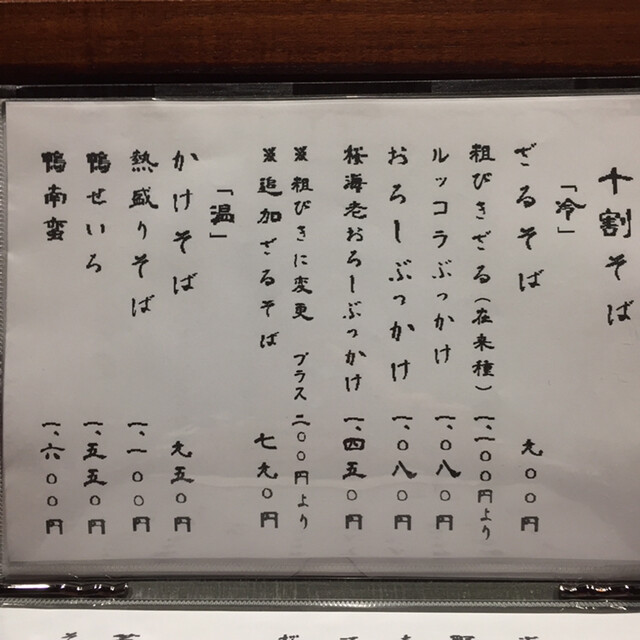 十割そば
「冷」
ざるそば 九〇〇円
粗びきざる(在来種) 一、一〇〇円より
ルッコラぶっかけ 一、〇八〇円
おろしぶっかけ 一、〇八〇円
桜海老おろしぶっかけ 一、四五〇円
※粗びきに変更 プラス二〇〇円より
※追加ざるそば 七九〇円
「温」
かけそば 九五〇円
熱盛りそば 一、一〇〇円
鴨せいろ 一、五五〇円
鴨南蛮 一、六〇〇円